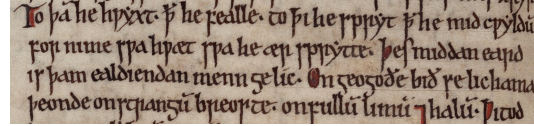 To þā he hryxt. ꝥ he fealle. to þi he sprytt ꝥ he mid cƿyldū
fornime sƿa hƿæt sƿa he ær sprytte. Þes middan eard
is þam ealdiendan menn gelic. On geogoðe bið se lichama
þeonde on strangū breoste. on fullū limū ⁊ halū. Ƿitod